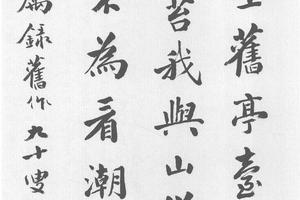 舊亭臺
苔我與山
不為看潮
錄舊作九十叟